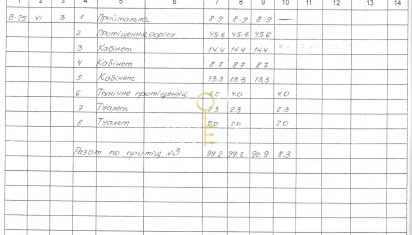 1 2 3 4 5 6 7 8 9 10 11 12 13 14
В-25 VI 3 1 Приймальня 8.9 8.9 8.9 —
2 Приміщення офісу 45.6 45.6 45.6
3 Кабінет 14.4 14.4 14.4
4 Кабінет 8.7 8.7 8.7
5 Кабінет 13.3 13.3 13.3
6 Технічне приміщення 4.0 4.0 4.0
7 Туалет 2.3 2.3 2.3
8 Туалет 2.0 2.0 2.0
Разом по приміщ. №3 99.2 99.2 90.9 8.3